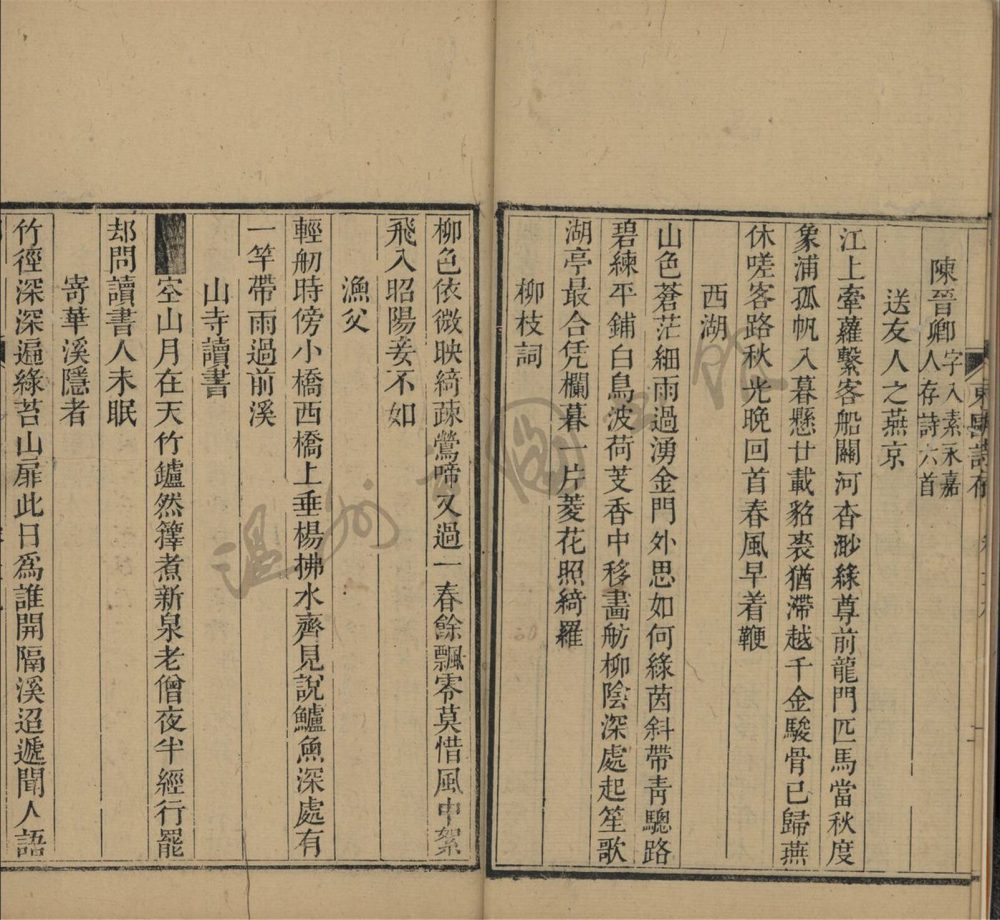 陳晉卿字入素永嘉
人存詩六首
送友人之燕京
江上牽蘿繫客船關河杳渺綠尊前龍門匹馬當秋度
象浦孤帆入暮懸廿載貂裘猶滯越千金駿骨已歸燕
休嗟客路秋光晚回首春風早着鞭
西湖
山色蒼茫細雨過湧金門外思如何綠茵斜帶靑驄路
碧練平鋪白鳥波荷芰香中移畵舫柳陰深處起笙歌
湖亭最合凭欄暮一片菱花照綺羅
柳枝詞
柳色依微映綺疎鶯啼又過一春餘飄零莫惜風中絮
飛入昭陽妾不如
漁父
輕舠時傍小橋西橋上垂楊拂水齊見說鱸魚深處有
一竿帶雨過前溪
山寺讀書
空山月在天竹鑪然籜煮新泉老僧夜半經行罷
却問讀書人未眠
寄華溪隱者
竹徑深深遍綠苔山扉此日爲誰開隔溪迢遞聞人語